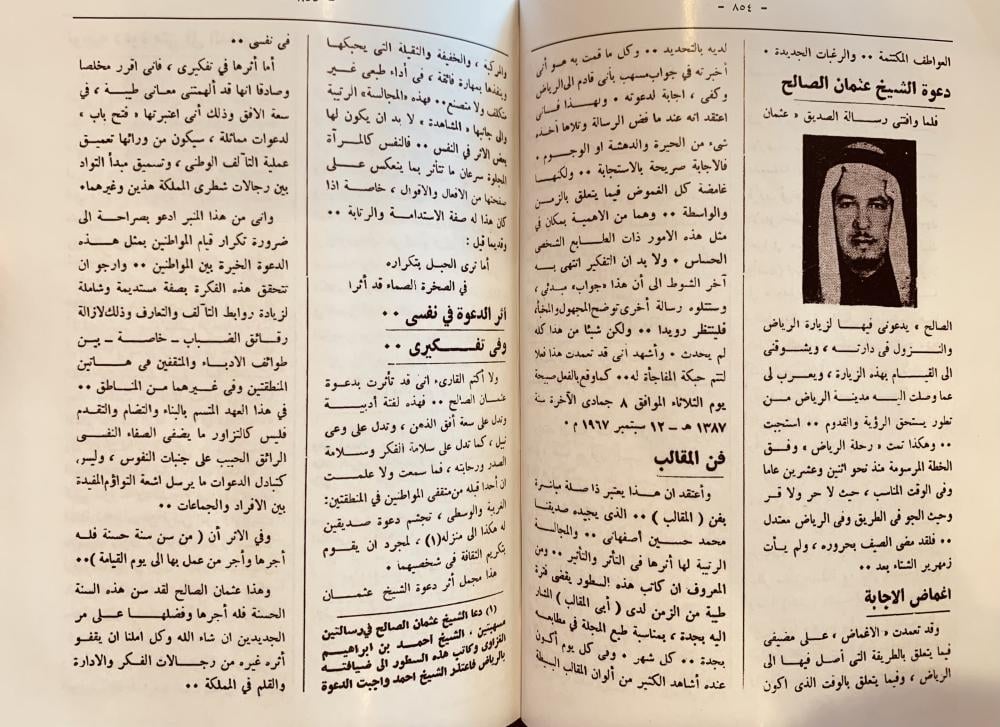 - ٨٥٤ -
العواطف المكتمة ٠٠ والرغبات الجديدة ٠
دعوة الشيخ عثمان الصالح
فلما وافتني رسالة الصديق « عثمان
الصالح » يدعوني فيها لزيارة الرياض
والنزول في دارته ، ويشوقني
الى القيام بهذه الزيارة ، ويعرب لى
عما وصلت اليه مدينة الرياض من
تطور يستحق الرؤية والقدوم ٠٠ استجبت
٠٠ وهكذا تمت « رحلة الرياض » وفق
الخطة المرسومة منذ نحو اثنين وعشرين عاما
وفى الوقت المناسب ، حيث لا حر ولا قر
وحيث الجو في الطريق وفى الرياض معتدل
٠٠ فلقد مضى الصيف بحروره ، ولم يأت
زمهرير الشتاء بعد ٠٠
اغماض الاجابة
وقد تعمدت « الاغماض » على مضيفي
فيما يتعلق بالطريقة التى أصل فيها الى
الرياض ، وفيما يتعلق بالوقت الذى اكون
لديه بالتحديد ٠٠ وكل ما قمت به هو أنى
أخبرته في جواب مسهب بأنى قادم الى الرياض
وكفى ، اجابة لدعوته ٠ ولهذا فانى
اعتقد انه عند ما فض الرسالة وتلاها أخذه
شىء من الحيرة والدهشة او الوجوم ٠
فالاجابة صريحة بالاستجابة ٠٠ ولكنها
غامضة كل الغموض فيما يتعلق بالزمن
والواسطة ٠٠ وهما من الاهمية بمكان في
مثل هذه الامور ذات الطابع الشخصى
الحساس ٠ ولا بد ان التفكير انتهى به
آخر الشوط الى أن هذا « جواب » مبدئى ،
وستتلوه رسالة أخرى توضح المجهول والمخبأ،
فلينتظر رويدا ٠٠ ولكن شيئا من هذا كله
لم يحدث ٠ وأشهد انى قد تعمدت هذا فعلا
لتتم حبكة المفاجأة له٠٠ كما وقع بالفعل صبيحة
يوم الثلاثاء الموافق ٨ جمادى الآخرة سنة
١٣٨٧ هـ ـ ١٢ سبتمبر ١٩٦٧ م ٠
فن المقالب
وأعتقد ان هذا يعتبر ذا صلة مباشرة
بفن ( المقالب ) ٠٠ الذى يجيده صديقنا
محمد حسين أصفهانى ٠٠ والمجالسة
الرتيبة لها أثرها في التأثر والتأثير ٠٠ ومن
المعروف ان كاتب هذه السطور يقضى فترة
طيبة من الزمن لدى ( أبى المقالب ) المشار
اليه بجدة ، بمناسبة طبع المجلة في مطابعه
بجدة ٠٠ كل شهر ٠ وفى كل يوم أكون
عنده أشاهد الكثير من ألوان المقالب البسيطة
والمركبة ، والخفيفة والثقيلة التى يحبكها
وينفذها بمهارة فائقة ، فى أداء طبعى غير
متكلف ولا متصنع٠٠ فهذه «المجالسة» الرتيبة
والى جانبها « المشاهدة » لا بد ان يكون لها
بعض الاثر في النفس ٠٠ فالنفس كالمرآة
المجلوة سرعان ما تتأثر بما ينعكس على
صفحتها من الافعال والاقوال ، خاصة اذا
كان هذا له صفة الاستدامة والرتابة ٠٠
وقديما قيل :
أما ترى الحبل بتكراره
في الصخرة الصماء قد أثرا
أثر الدعوة في نفسى ٠٠
وفى تفكيرى ٠٠
ولا أكتم القارىء انى قد تأثرت بدعوة
عثمان الصالح ٠٠ فهذه لفتة أدبية
وتدل على سعة أفق الذهن ، وتدل على وعى
نبيل ، كما تدل على سلامة الفكر وسلامة
الصدر ورحابته ، فما سمعت ولا علمت
ان أحدا قبله من مثقفى المواطنين في المنطقتين:
الغربية والوسطى ، تجشم دعوة صديقين
له هكذا الى منزله(١) ، لمجرد ان يقوم
بتكريم الثقافة في شخصيهما ٠
هذا مجمل أثر دعوة الشيخ عثمان
(١) دعا الشيخ عثمان الصالح في رسالتين
مسهبتين ، الشيخ احمد بن ابراهيم
الغزاوى وكاتب هذه السطور الى ضيافته
بالرياض فاعتذر الشيخ احمد واجبت الدعوة
فى نفسى ٠٠
أما أثرها في تفكيرى ، فانى اقرر مخلصا
وصادقا انها قد ألهمتنى معانى طيبة ، في
سعة الافق وذلك أنى اعتبرتها « فتح باب »
لدعوات مماثلة ، سيكون من ورائها تعميق
عملية التآلف الوطنى ، وتسميق مبدأ التواد
بين رجالات شطرى المملكة هذين وغيرهما٠
وانى من هذا المنبر ادعو بصراحة الى
ضرورة تكرار قيام المواطنين بمثل هذه
الدعوة الخيرة بين المواطنين ٠٠ وارجو ان
تتحقق هذه الفكرة بصفة مستديمة وشاملة
لزيادة روابط التآلف والتعارف وذلك لازالة
رقائق الضباب ـ خاصة ـ بين
طوائف الادباء والمثقفين في هاتين
المنطقتين وفى غيرهما من المناطق ٠٠
في هذا العهد المتسم بالبناء والتضام والتقدم
فليس كالتزاور ما يضفى الصفاء النفسى
الرائق الحبيب على جنبات النفوس ، وليس
كتبادل الدعوات ما يرسل اشعة التواؤم المفيدة
بين الافراد والجماعات ٠٠
وفي الاثر أن ( من سن سنة حسنة فله
أجرها وأجر من عمل بها الى يوم القيامة )٠٠
وهذا عثمان الصالح لقد سن هذه السنة
الحسنة فله أجرها وفضلها على مر
الجديدين ان شاء الله وكل املنا ان يقفو
أثره غيره من رجالات الفكر والادارة
والقلم في المملكة ٠٠